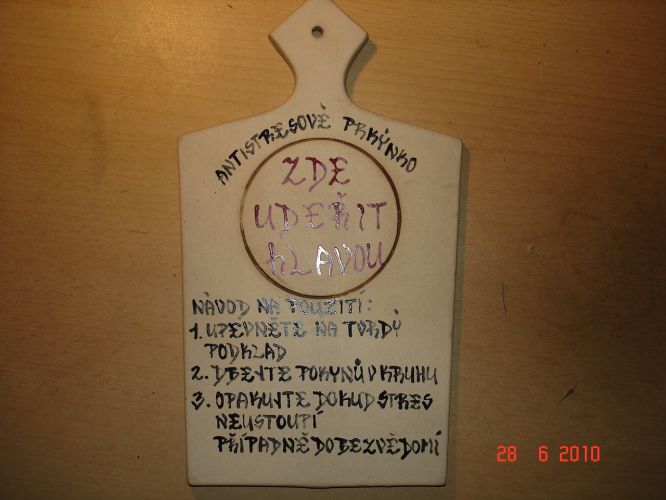 ANTISTRESOVÉ PRKÝNKO
ZDE
UDEŘIT
HLAVOU
NÁVOD NA POUŽITÍ:
1. UPEVNĚTE NA TVRDÝ
PODKLAD
2. DBEJTE POKYNŮ V KRUHU
3. OPAKUJTE DOKUD STRES
NEUSTOUPÍ
PŘÍPADNĚ DO BEZVĚDOMÍ
28 6 2010